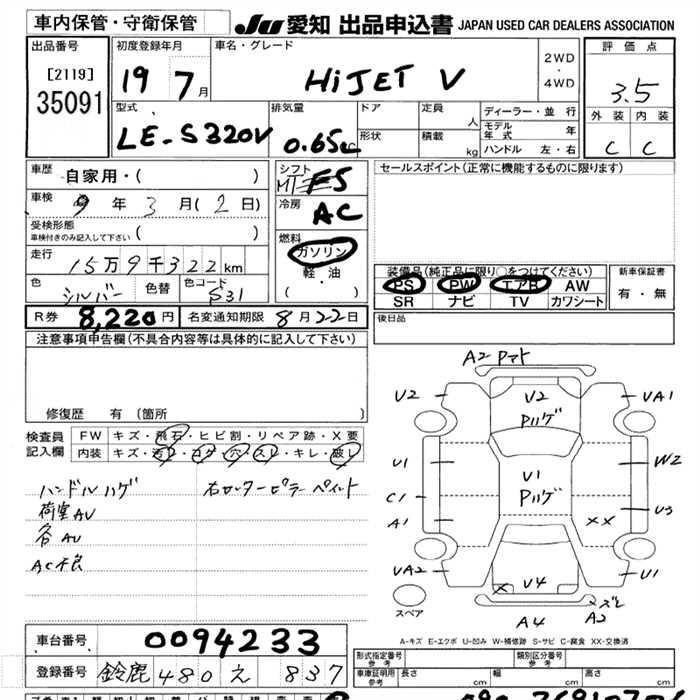 車内保管・守衛保管
JU 愛知 出品申込書 JAPAN USED CAR DEALERS ASSOCIATION
出品番号
[2119]
35091
初度登録年月
19 7月
車名・グレード
HiJET V
2WD
・
4WD
評価点
3.5
外装 内装
C C
型式
LE-S320V
排気量
0.65cc
ドア
形状
定員
人
積載
kg
ディーラー・並行
モデル年式 年
ハンドル 左・右
車歴
自家用・( )
車検
9年3月(2日)
受検形態
車検付きのみ記入して下さい ( )
走行
15万9千322km
色
シルバー
色替
色コード
S31
シフト
MT F5
冷房
AC
燃料
ガソリン
・
軽・油
( ・ )
セールスポイント(正常に機能するものに限ります)
装備品(純正品に限り○をつけてください)
PS PW エアB AW
SR ナビ TV カワシート
新車保証書
有・無
後日品
R券 8,220円 名変通知期限 8月22日
注意事項申告欄(不具合内容等は具体的に記入して下さい)
修復歴 有 〔箇所
検査員
記入欄
FW キズ・飛石・ヒビ割・リペア跡・X要
内装 キズ・汚レ・コゲ・穴・スレ・キレ・破レ
ハンドルハゲ
荷室AU
各AU
AC不良
右センターピラーペイント
A2 Pマト
U2
U2
Pハゲ
UA1
U1
U1
Pハゲ
W2
C1
A1
XX
U3
UA2
X
U4
U1
スペア
A4
A2
A-キズ E-エクボ U-凹み W-補修跡 S-サビ C-腐食 XX-交換済
車台番号 0094233
登録番号 鈴鹿 480 え 837
形式指定番号
参考
類別区分番号
参考
車庫証明用
参考
長さ cm
幅 cm
高さ cm